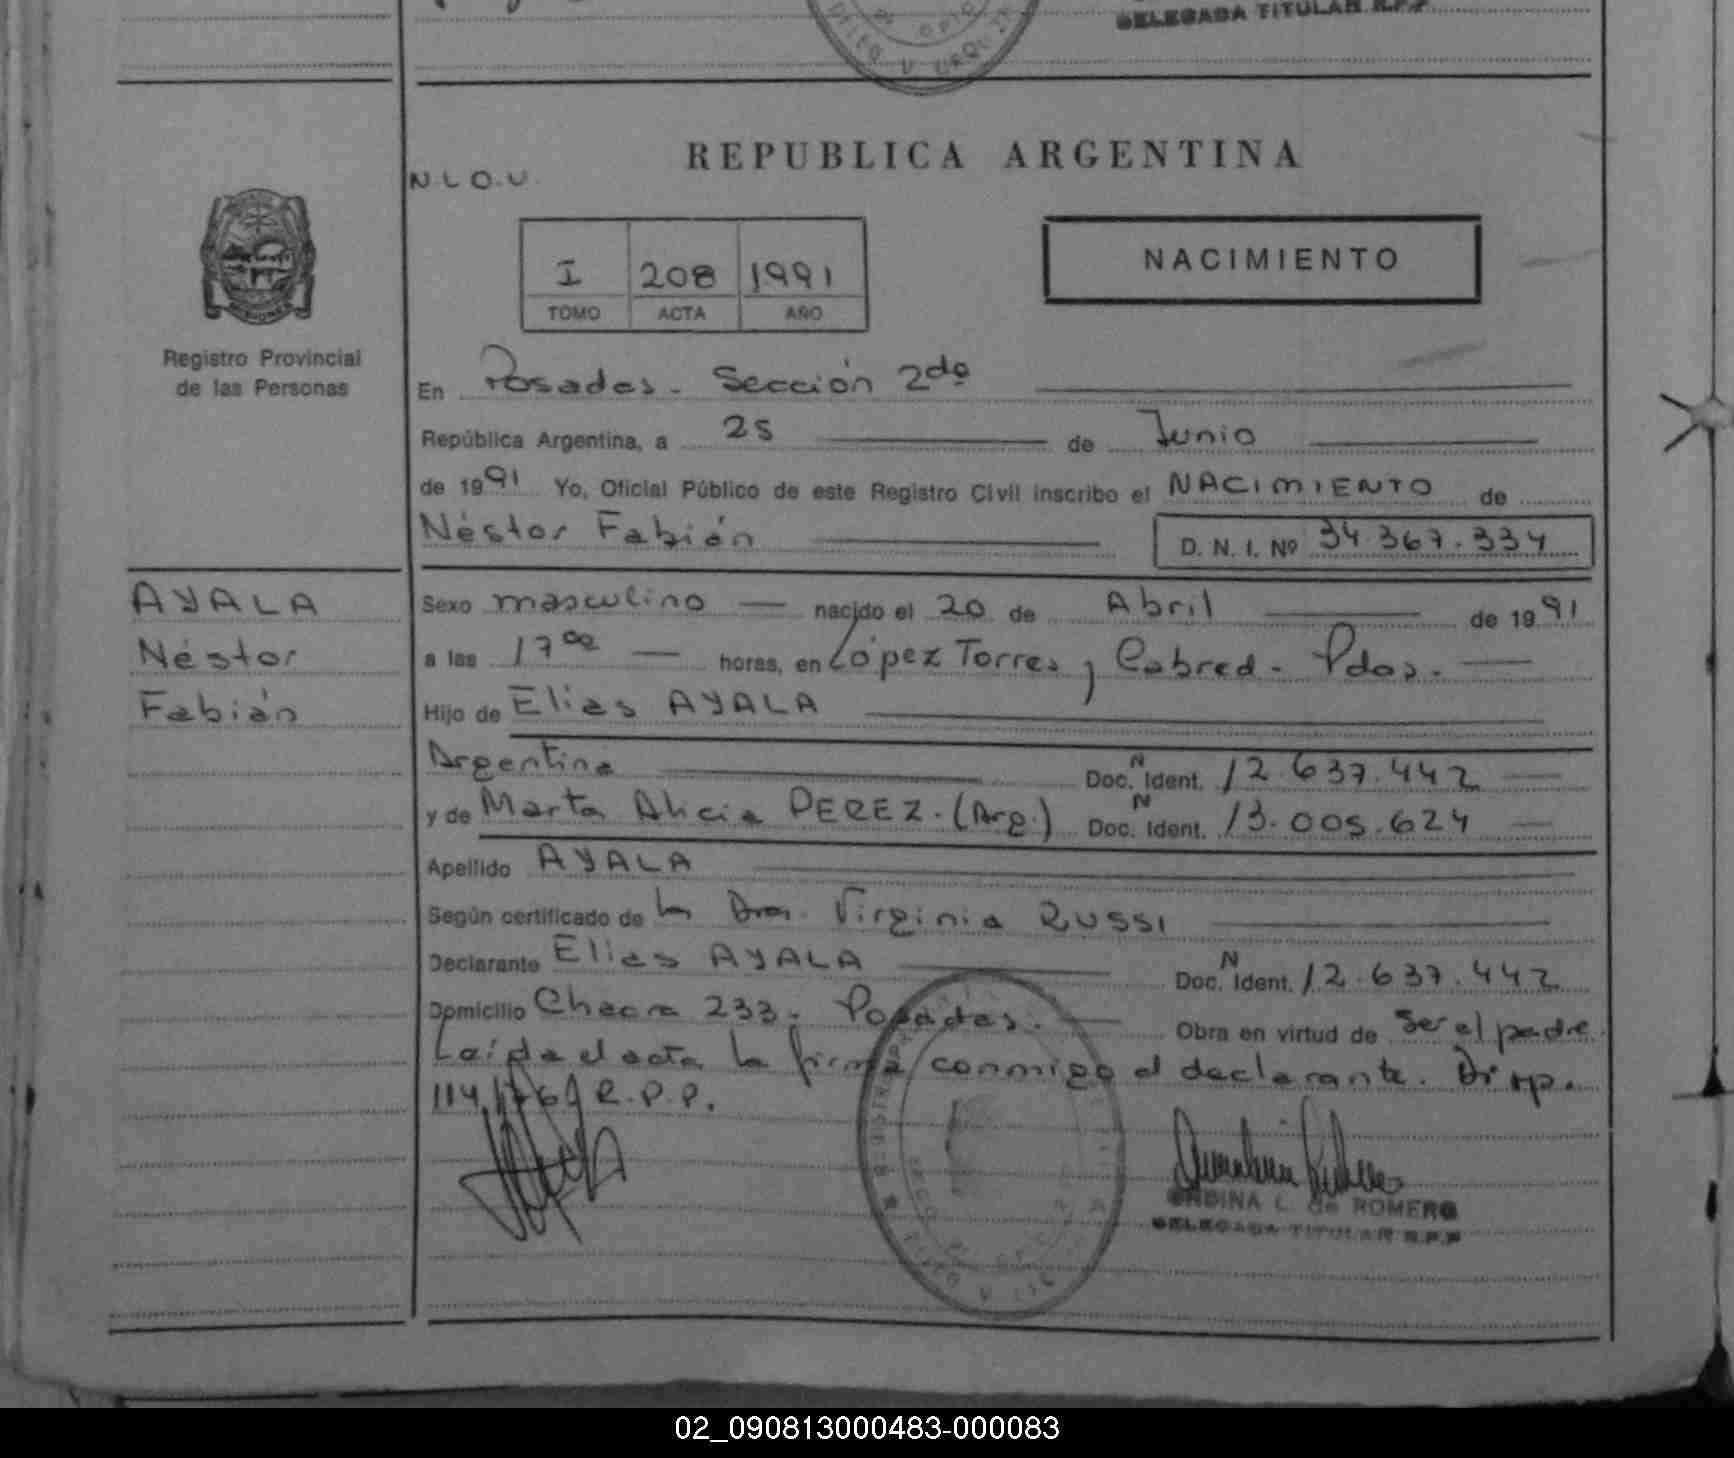 DELEGADA TITULAR R.P.P
REPUBLICA ARGENTINA
N.L.O.U.
NACIMIENTO
I 208 1991
TOMO ACTA AÑO
Registro Provincial
de las Personas
En Posadas - Sección 2da
República Argentina, a 25 de Junio
de 1991 Yo, Oficial Público de este Registro Civil inscribo el NACIMIENTO de
Néstor Fabián D. N. I. Nº 34.367.334
AYALA
Néstor
Fabián
Sexo masculino nacido el 20 de Abril de 1991
a las 17 00 horas, en López Torres y Cabred - Pdas.
Hijo de Elias AYALA
Argentina Doc. N Ident. 12.637.442
y de Marta Alicia PEREZ. (Arg.) Doc. N Ident. 13.005.624
Apellido AYALA
Según certificado de la Dra. Virginia RUSSI
Declarante Elias AYALA Doc. N Ident. 12.637.442
Domicilio Chacra 233. Posadas. Obra en virtud de ser el padre
Leída el acta la firma conmigo el declarante. Disp.
114/ R.P.P.
ONDINA L. de ROMERO
DELEGADA TITULAR R.P.P
02_090813000483-000083